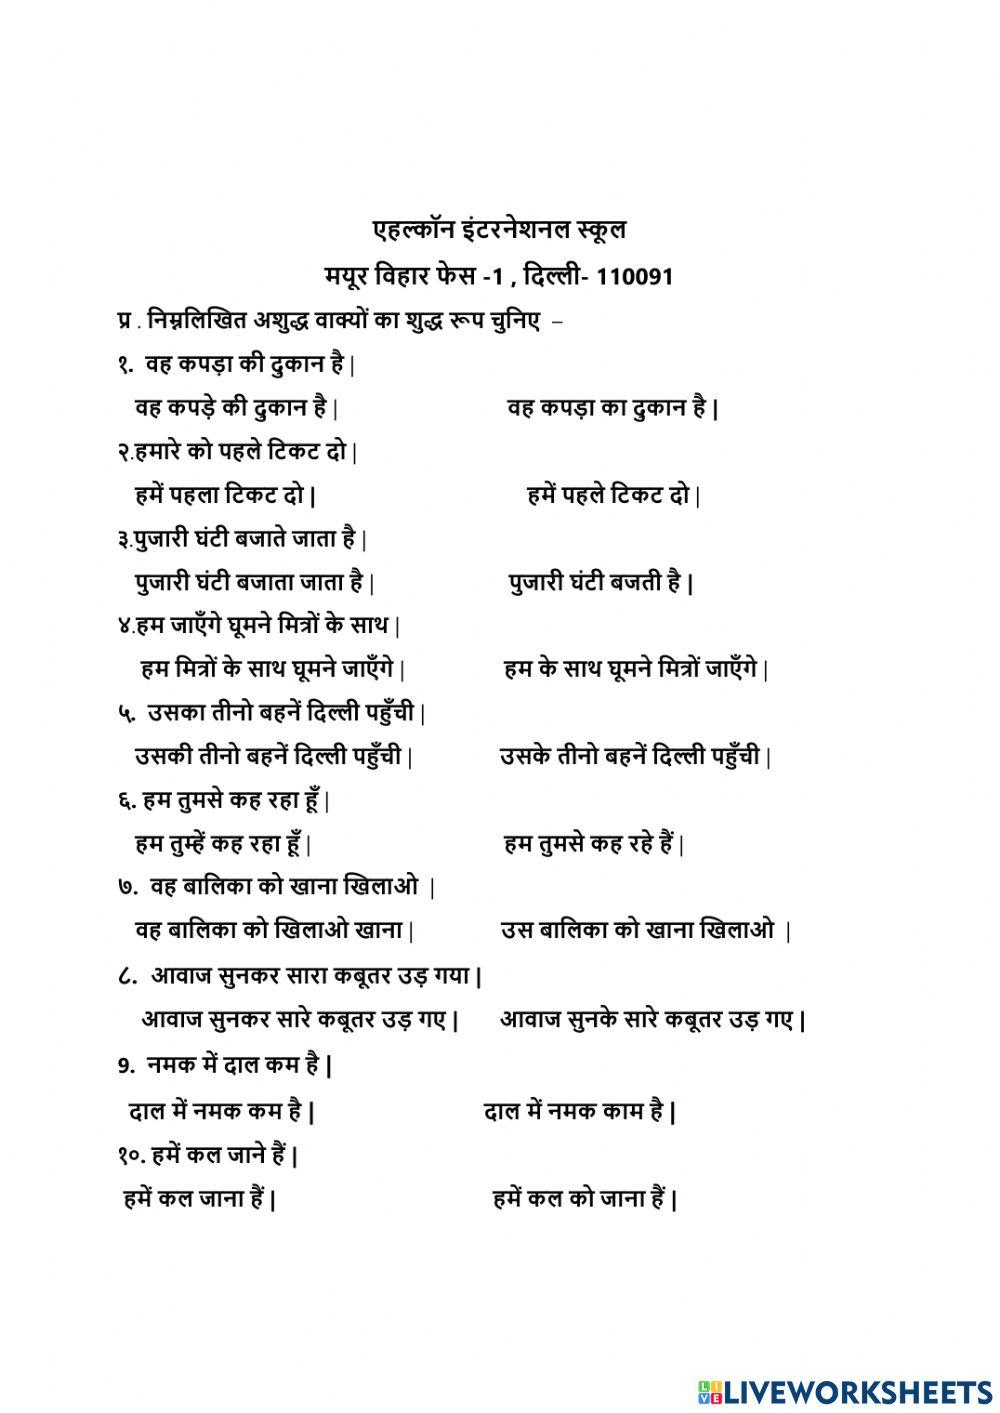 एहल्कॉन इंटरनेशनल स्कूल
मयूर विहार फेस -1 , दिल्ली- 110091
प्र . निम्नलिखित अशुद्ध वाक्यों का शुद्ध रूप चुनिए –
१. वह कपड़ा की दुकान है |
वह कपड़े की दुकान है | वह कपड़ा का दुकान है |
२.हमारे को पहले टिकट दो |
हमें पहला टिकट दो | हमें पहले टिकट दो |
३.पुजारी घंटी बजाते जाता है |
पुजारी घंटी बजाता जाता है | पुजारी घंटी बजती है |
४.हम जाएँगे घूमने मित्रों के साथ |
हम मित्रों के साथ घूमने जाएँगे | हम के साथ घूमने मित्रों जाएँगे |
५. उसका तीनो बहनें दिल्ली पहुँची |
उसकी तीनो बहनें दिल्ली पहुँची | उसके तीनो बहनें दिल्ली पहुँची |
६. हम तुमसे कह रहा हूँ |
हम तुम्हें कह रहा हूँ | हम तुमसे कह रहे हैं |
७. वह बालिका को खाना खिलाओ |
वह बालिका को खिलाओ खाना | उस बालिका को खाना खिलाओ |
८. आवाज सुनकर सारा कबूतर उड़ गया |
आवाज सुनकर सारे कबूतर उड़ गए | आवाज सुनके सारे कबूतर उड़ गए |
9. नमक में दाल कम है |
दाल में नमक कम है | दाल में नमक काम है |
१०. हमें कल जाने हैं |
हमें कल जाना हैं | हमें कल को जाना हैं |
LIVE LIVEWORKSHEETS